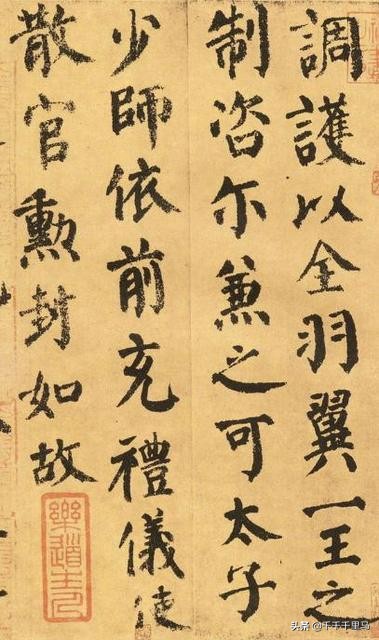 調護以全羽翼一王之
制咨尓兼之可太子
少師依前充禮儀使
散官勳封如故
樂道主人
头条@千千千里马